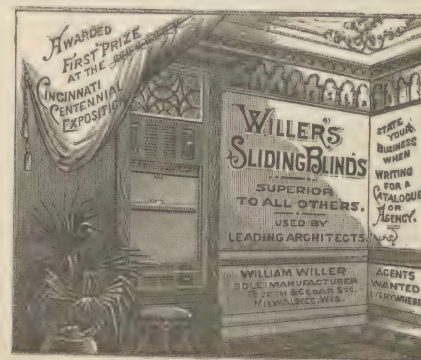 AWARDED
FIRST PRIZE
AT THE
CINCINNATI
CENTENNIAL
EXPOSITION
WILLER'S
SLIDING BLINDS
SUPERIOR
TO ALL OTHERS.
USED BY
LEADING ARCHITECTS.
WILLIAM WILLER
SOLE MANUFACTURER
& CEDAR STS.
MILWAUKEE, WIS.
STATE
YOUR
BUSINESS
WHEN
WRITING
FOR A
CATALOGUE
OR
AGENCY.
AGENTS
WANTED
EVERYWHERE